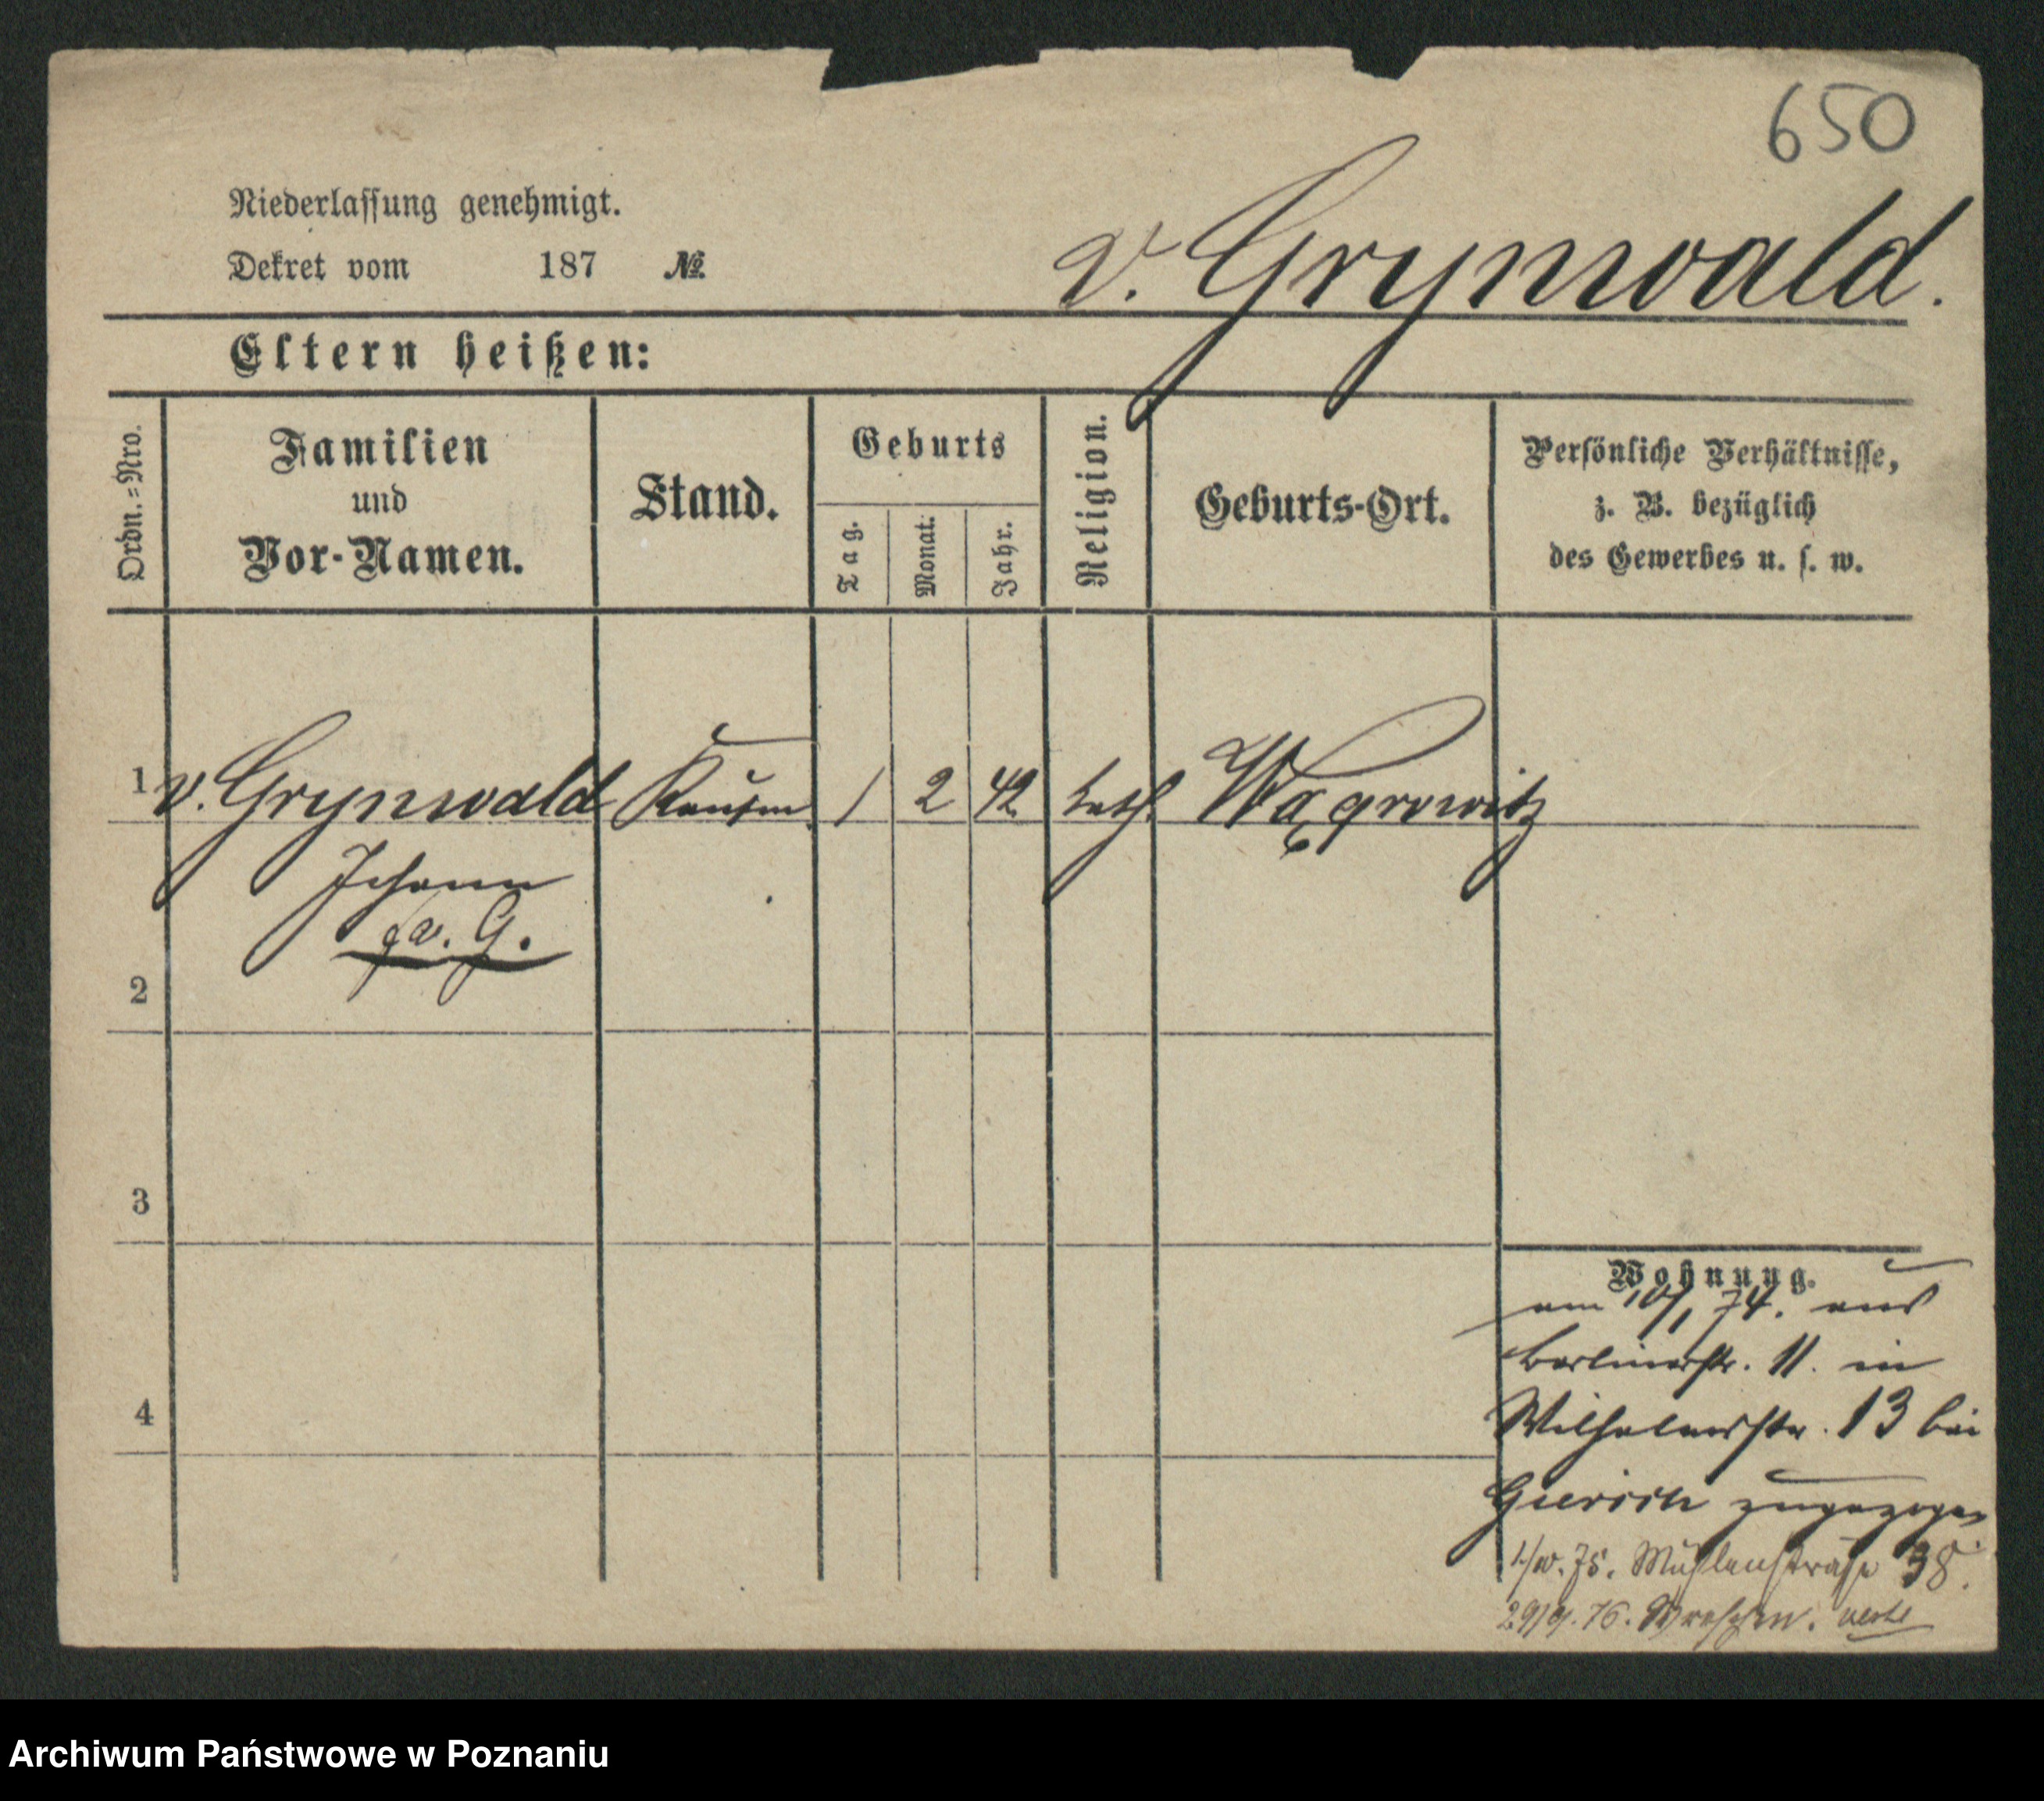 650
Niederlassung genehmigt.
Dekret vom 187 №
v. Grynwald.
Eltern heißen:
Ordn.=Nro.
Familien
und
Vor-Namen.
Stand.
Geburts
Tag.
Monat.
Jahr.
Religion.
Geburts-Ort.
Persönliche Verhältnisse,
z. B. bezüglich
des Gewerbes u. s. w.
1 v. Grynwald Kaufm. 1 2 42 kath. Wągrowitz
Johann
v. G.
2
3
4
Wohnung.
am 10/1 74. aus
Berlinerstr. 11. in
Wilhelmsstr. 13 bei
zugezogen
1/10. 75. Mühlenstraße 38.
29/9. 76. Wreschen.
Archiwum Państwowe w Poznaniu